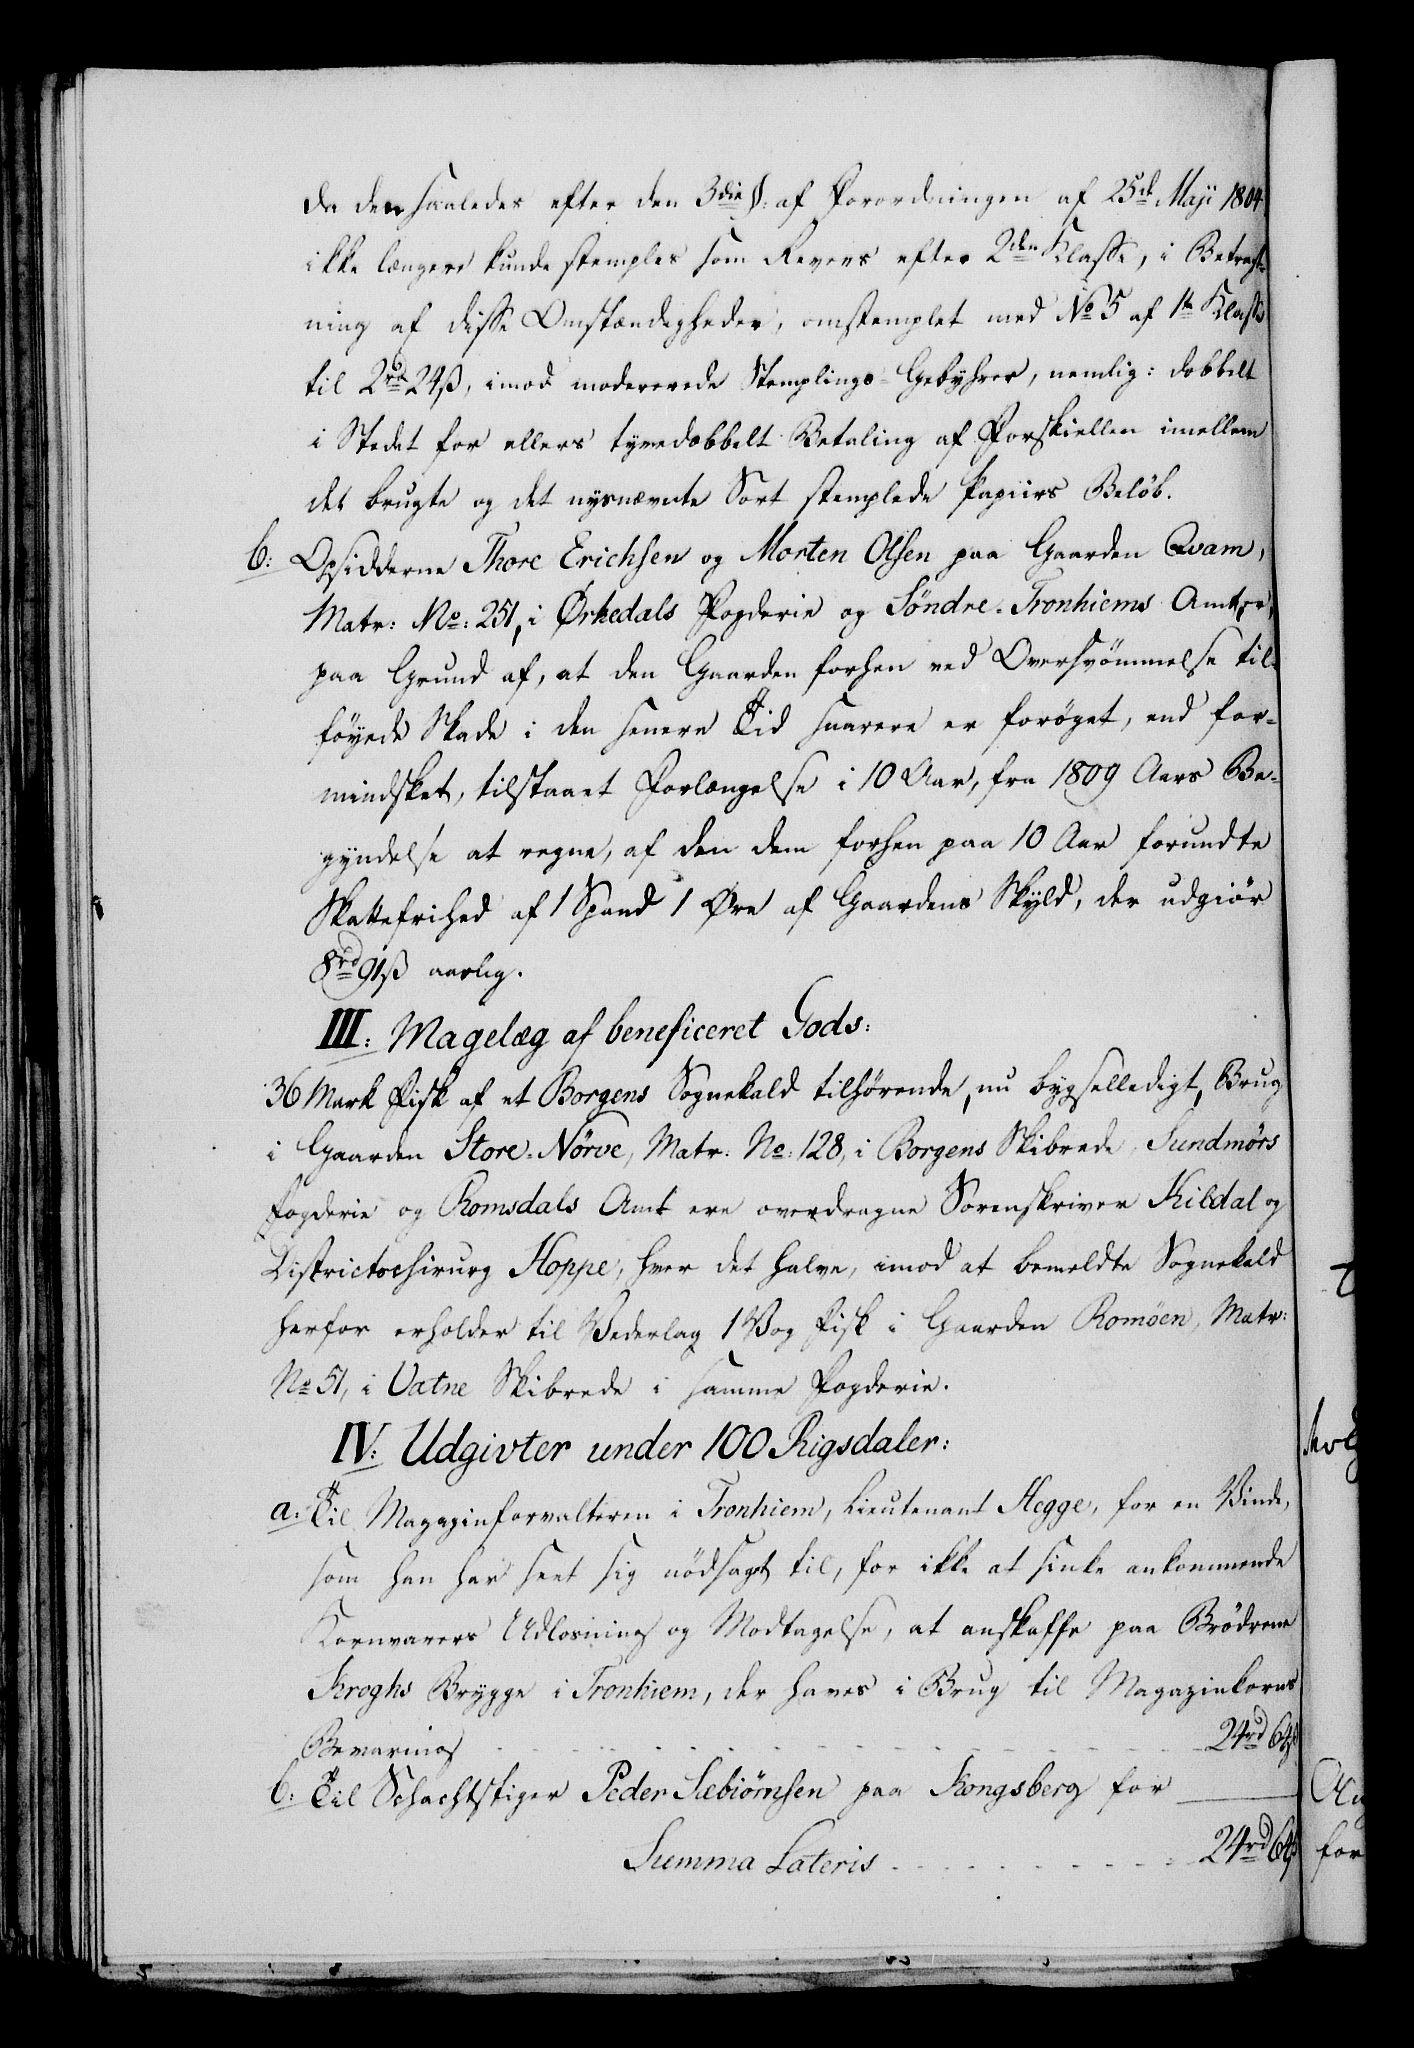 da den saaledes efter den 3die §: af Forordningen af 25de Maji 1804
ikke længere kunde stemples som Revers efter 2den Klasse, i Betragt-
ning af disse Omstændigheder, omstemplet med No 5 af 1te Klasse
til 2rd 24ß, imod modererede Stemplings-Gebyhrer, nemlig: dobbelt
i Stedet for ellers tyvedobbelt Betaling af Forskiellen imellem
det brugte og det nysnævnte Sort stemplede Papiirs Beløb.
b: Opsidderne Thore Erichsen og Morten Olsen paa Gaarden Qvam,
Matr: No: 251, i Ørkedals Fogderie og Söndre-Tronhiems Amter,
paa Grund af, at den Gaarden forhen ved Oversvömmelse til-
föyede Skade i den senere Tid snarere er forøget, end for-
mindsket, tilstaaet Forlængelse i 10 Aar, fra 1809 Aars Be-
gyndelse at regne, af den dem forhen paa 10 Aar forundte
Skattefrihed af 1 Spand 1 Øre af Gaardens Skyld, der udgiör
8rd 91ß aarlig.
III: Magelæg af beneficeret Gods:
36 Mark Fisk af et Borgens Sognekald tilhørende, nu bygselledigt, Brug
i Gaarden Store-Nörve, Matr. No: 128, i Borgens Skibrede, Sundmörs
Fogderie og Romsdals Amt ere overdragne Sorenskriver Kildal og
Districtschirurg Hoppe, hver det halve, imod at bemeldte Sognekald
herfor erholder til Vederlag 1 Vog Fisk i Gaarden Romöen, Matr:
No 51, i Vatne Skibrede i samme Fogderie.
IV: Udgivter under 100 Rigsdaler:
a: Til Magazinforvalteren i Tronhiem, Lieutenant Hegge, for en Vinde,
som han har seet sig nödsaget til, for ikke at sinke ankommende
Kornvarers Udlosning og Modtagelse, at anskaffe paa Brödrene
Kroghs Brygge i Tronhiem, der haves i Brug til Magazinkorns
Bevaring - - - - - - - - - - 24rd 64ß
b: Til Schachtstiger Peder Sæbiörnsen paa Kongsberg for
Summa Lateris - - - - - - - 24rd 64ß